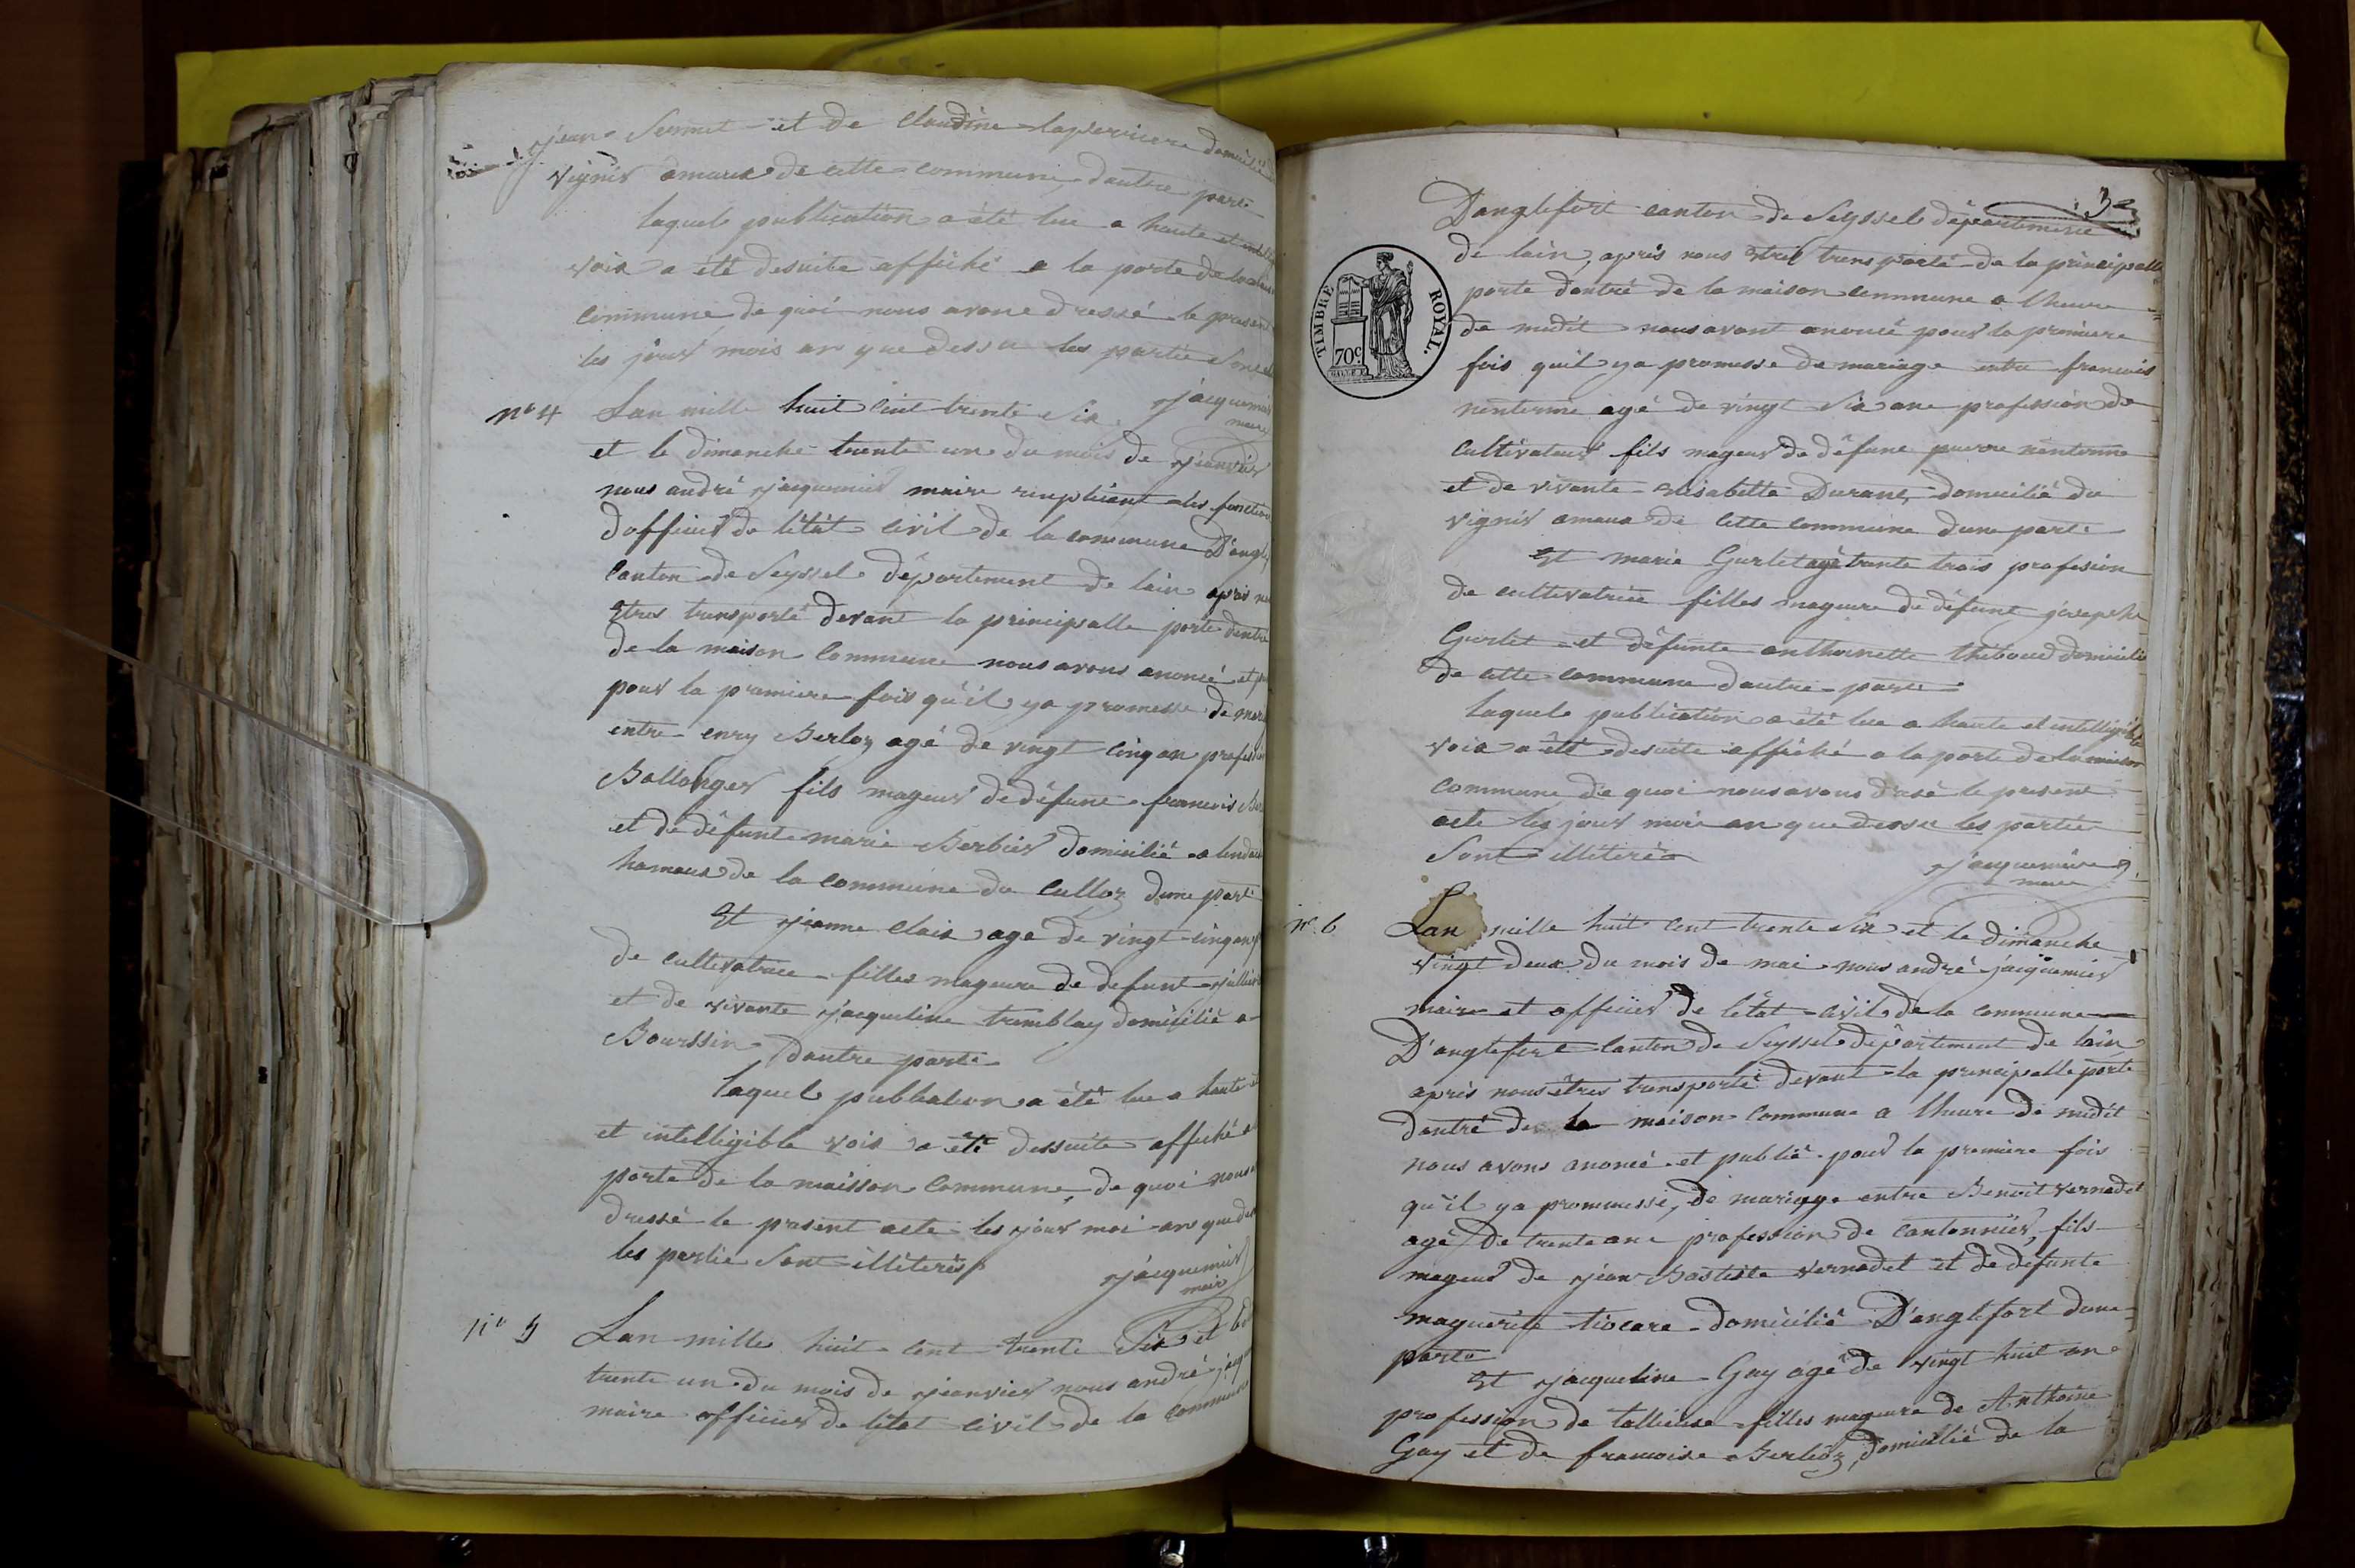 jean Sermet et de Claudine laperriere domicilié
vignis amaux de cette commune dautre part
laquele publication a été lue a haute et
voix a été desuite affiché a la porte de la
commune de quoi nous avons dressé le present
les jour mois an que dessu les partie Sont
jacquemier
maire
n° 4 Lan mille huit cent trente Six
et le dimanche trente un du mois de janvier
nous andré jacquemier maire remplisant les fonction
dofficier de létat civil de la commune D'angle
Canton de Seyssel département de lain après
Etres transporté devant la principalle porte dentre
de la maison Commune nous avons anoncé et
pour la premiere fois qu'il ya promesse de
entre enry Berloz agé de vingt cinq an profession
Bollonger fils mageur de défunt francois
et de défunte marie Berbier domicilié a
hamaux de la commune du Culloz dune part
Et jeanne Clair age de vingt cinq an
de cultivatrice filles mageure de defunt
et de vivante jacqueline tremblay domicilié a
Bourssin dautre parti
laquel publication a été lue a haute
et intelligible voix a été dessuite affiché a
porte de la maisson Commune, de quoi nous
dressé le present acte les jour moi an que
les partie Sont illiterés
jacquemier
maire
n° 5 Lan mille huit cent trente Six et
trente un du mois de jeanvier nous andré
maire officier de létat civil de la commune
3e
Danglefort canton de Seyssel département
de lain, après nous Etres transporté de la principalle
porte dantré de la maison commune a lheure
de midit nous avont anoncé pour la premiere
fois quil ya promesse de mariage entre francois
nenterme agé de vingt Six ans profession de
Cultivateur fils mageur de défunt nentenne
et de vivante Elisabette Durant, domicilié du
vignis amaux de cette commune dune parte
Et marie Gurlet agé trente trois profesion
de cultivatrice filles mageure de défunt josephe
Gurlet et défunte anthoinette thiboud domicilié
de cette commune dautre parte
laquele publication a été lue a haute et intelligible
voix a été desuite affiché a la porte de la maison
commune de quoi nous avons dresé le present
acte les jour moi an que dessu les partie
Sont illiteré
jacquemier
maire
TIMBRE ROYAL.
70c
n° 6 Lan mille huit cent trente Six et le dimanche
vingt deux du mois de mai nous andré jacquemier
maire et officier de létat civil de la commune
D'anglefort canton de Seyssel département de lain
après nous êtres transporté devant la principalle porte
dantré de la maison Commune a lheure de midit
nous avons anoncé et publié pour la premiere fois
qu'il ya prommesse, de mariage entre Benoit vernadet
agé de trente ans profession de cantonnier, fils
mageur de jean Bastiste vernadet et de défunte
maguerite tiocare domicilié D'anglefort dune
parte
Et jacqueline Gay agé de vingt huit an
profession de tallieuse filles mageure de Anthoine
Gay et de francoise Berlioz, domicilié de la